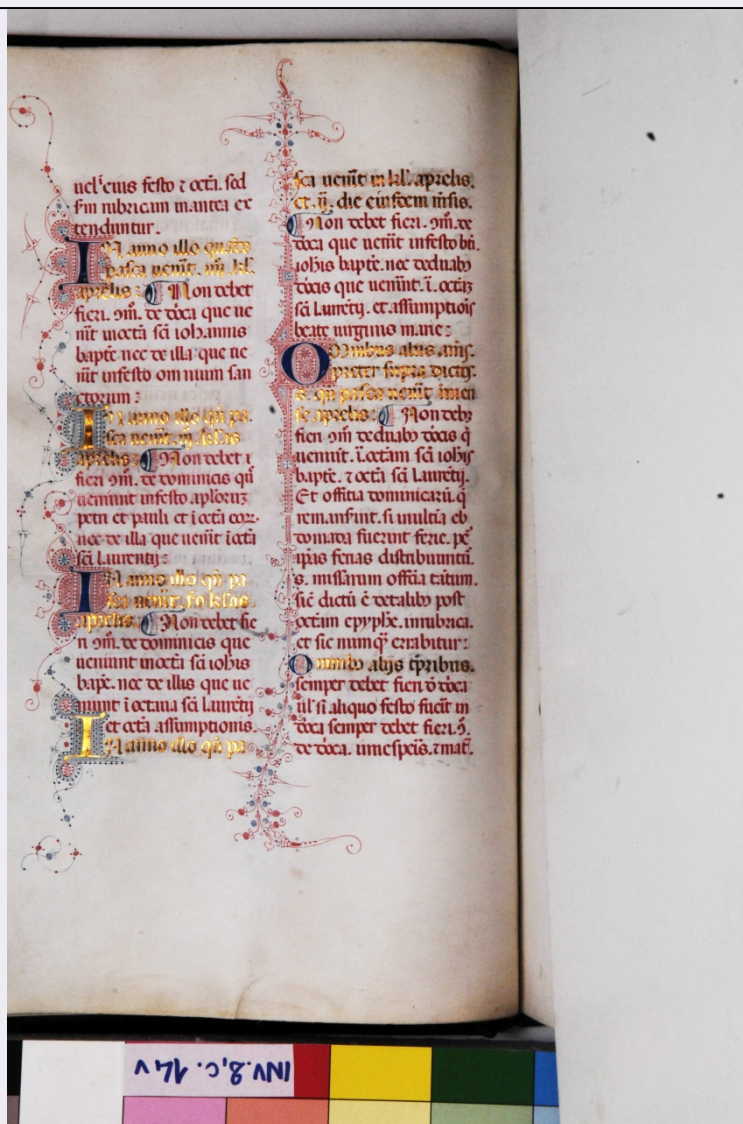 uel eius festo ⁊ octã. sed
fm rubricam in antea ex
tenduntur.
IN anno illo quãdo
pasca uenit. iiij. kl.
aprelis: Non debet
fieri. 9m. de dñca que ue
nit in octã sci ioħannis
bapte nec de illa que ue
nit in festo omnium san
ctorum:
IN anno illo qñ pa
sca uenit. iij. kl'as
aprelis Non debet
fieri 9m. de dominicis que
ueniunt in festo aplorum
petri et pauli et i octã eoꝝ.
nec de illa que uenit i octã
sci laurentij:
IN anno illo qñ pa
sca uenit. kl'as
aprelis. Non debet fie
ri 9m. de dominicis que
ueniunt in octã sci ioħis
bapt. nec de illis que ue
niunt i octaua sci laurẽtij
et octã assumptionis.
IN anno illo qñ pa
sca uenit in kl'. aprelis.
et. ij. die eiusdem mẽsis.
Non debet fieri. 9m. de
dñca que uenit in festo bti.
ioħis bapte. nec de duabꝫ
dñcis que ueniunt. ĩ. octãs
sci laurẽtij. et. assumptiõis
beate uirginis marie:
OMnibus aliis annis.
preter supra dictos
qñ pasca uenit in mẽn
se aprelis: Non debꝫ
fieri 9m de duabꝫ dñcis q̃
ueniunt. ĩ octam sci ioħis
bapte. ⁊ octã sci laurẽtij.
Et offitia dominicarũ. q̃
remanserint. si multa eb
domada fuerint ferie. pẽ
ip̃as ferias distribuuntũ.
s. missarum offitia tantum.
sic dictũ ẽ de talibꝫ post
octam epyphie. in rubrica.
et sic numq̃ errabitur:
Omnibꝫ alijs tp̃ribus.
semper debet fieri ð dñca
ul' si aliquo festo fuerit in
dñca semper debet fieri. 9.
de dñca. in uesperis. ⁊ mat̃.
INV. 2, c. 14 v